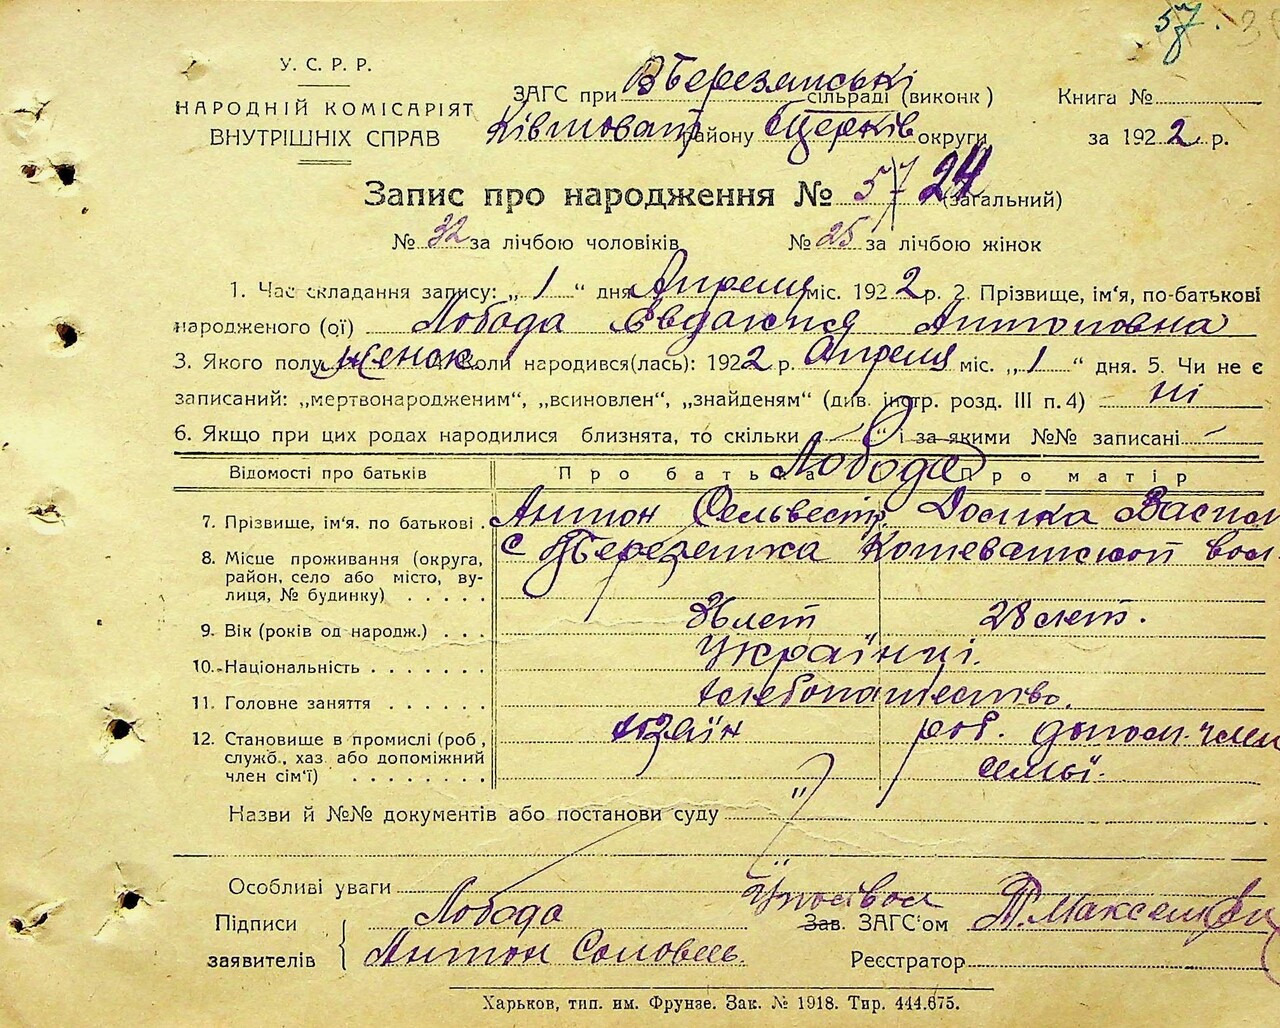 57.
У. С. Р. Р.
НАРОДНІЙ КОМІСАРІЯТ
ВНУТРІШНІХ СПРАВ
ЗАГС при ВБерезанські сільраді (виконк)
району Церків округи
Книга №
за 1922 р.
Запис про народження № 57 24 (загальний)
№ 32 за лічбою чоловіків № 25 за лічбою жінок
1. Час складання запису: „ 1 “ дня Апреля міс. 1922 р. 2. Прізвище, ім'я, по-батькові
народженого (ої) Лобода Евдокия Антоновна
3. Якого полу женск Коли народився(лась): 1922 р. Апреля міс. „ 1 “ дня. 5. Чи не є
записаний: „мертвонародженим“, „всиновлен“, „знайденям“ (див. інстр. розд. III п. 4) ні
6. Якщо при цих родах народилися близнята, то скільки „ “ і за якими №№ записані -
Відомості про батьків Про батька Про матір
Лобода
7. Прізвище, ім'я. по батькові . Антон Сельвестр. Домка Васил
8. Місце проживання (округа, с ВБерезянка вол.
район, село або місто, ву-
лиця, № будинку) . . . . .
9. Вік (років од народж.) . . . 36 лет 28 лет.
10. Національність . . . . . . . Українці.
11. Головне заняття . . . . . . хлебопашество.
12. Становище в промислі (роб, хозяїн роб. допом. член
служб., хаз. або допоміжний семьї.
член сім'ї) . . . . . . . .
Назви й №№ документів або постанови суду „
Особливі уваги
Підписи Лобода Зав. ЗАГС'ом
заявителів Антон Реєстратор
Харьков, тип. им. Фрунзе. Зак. № 1918. Тир. 444.675.